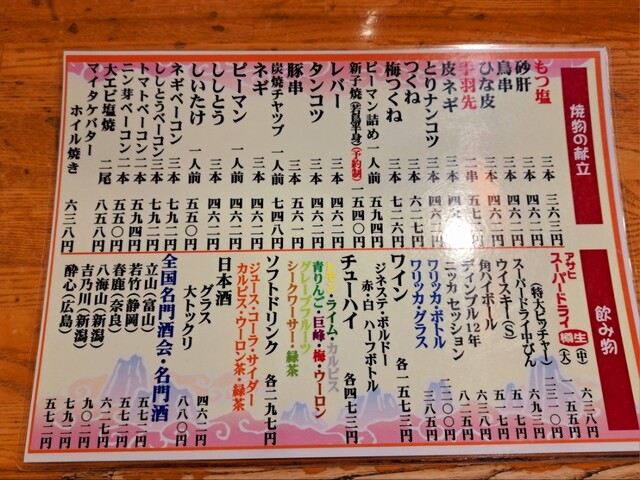 焼物の献立
もつ塩 三本 三六三円
砂肝 三本 四六二円
鳥串 三本 四六二円
ひな皮 三本 四六二円
手羽先 二串 五七二円
皮ネギ 三本 四六二円
とりナンコツ 三本 四六二円
つくね 三本 六二七円
梅つくね 三本 七二六円
ピーマン詰め 一人前 五九四円
新子焼(若鳥半身)(予約制) 一五四〇円
レバー 三本 四六二円
タンコツ 三本 四六二円
豚串 三本 五六一円
炭焼チャップ 一人前 七四八円
ネギ 三本 四六二円
ピーマン 一人前 四六二円
ししとう 一人前 四六二円
しいたけ 一人前 五五〇円
ネギベーコン 三本 七九二円
ししとうベーコン 三本 七九二円
トマトベーコン 二本 五五〇円
ニン芽ベーコン 二本 五五〇円
大エビ塩焼 二尾 八五八円
マイタケバター
ホイル焼き 六三八円
飲み物
アサヒ
スーパードライ 樽生 (中) 六三八円
(大) 一一五五円
(特大ピッチャー) 二三一〇円
スーパードライ中びん 六九三円
ウイスキー(S)
角ハイボール
ディンプル12年
ニッカ セッション 二二〇〇円
ワリッカ・ボトル 三八五円
ワリッカ・グラス
ワイン 各一五七三円
ジネステ・ボルドー
赤・白 ハーフボトル
チューハイ 各四七三円
レモン・ライム・カルピス
青りんご・巨峰・梅・ウーロン
グレープフルーツ
シークワーサー・緑茶
ソフトドリンク 各二九七円
ジュース・コーラ・サイダー
カルピス・ウーロン茶・緑茶
日本酒
グラス 四六二円
大トックリ 八八〇円
全国名門酒会・名門酒
立山(富山) 五七二円
若竹(静岡) 五七二円
春鹿(奈良) 六八二円
八海山(新潟) 九〇二円
吉乃川(新潟) 七九二円
酔心(広島) 五七二円